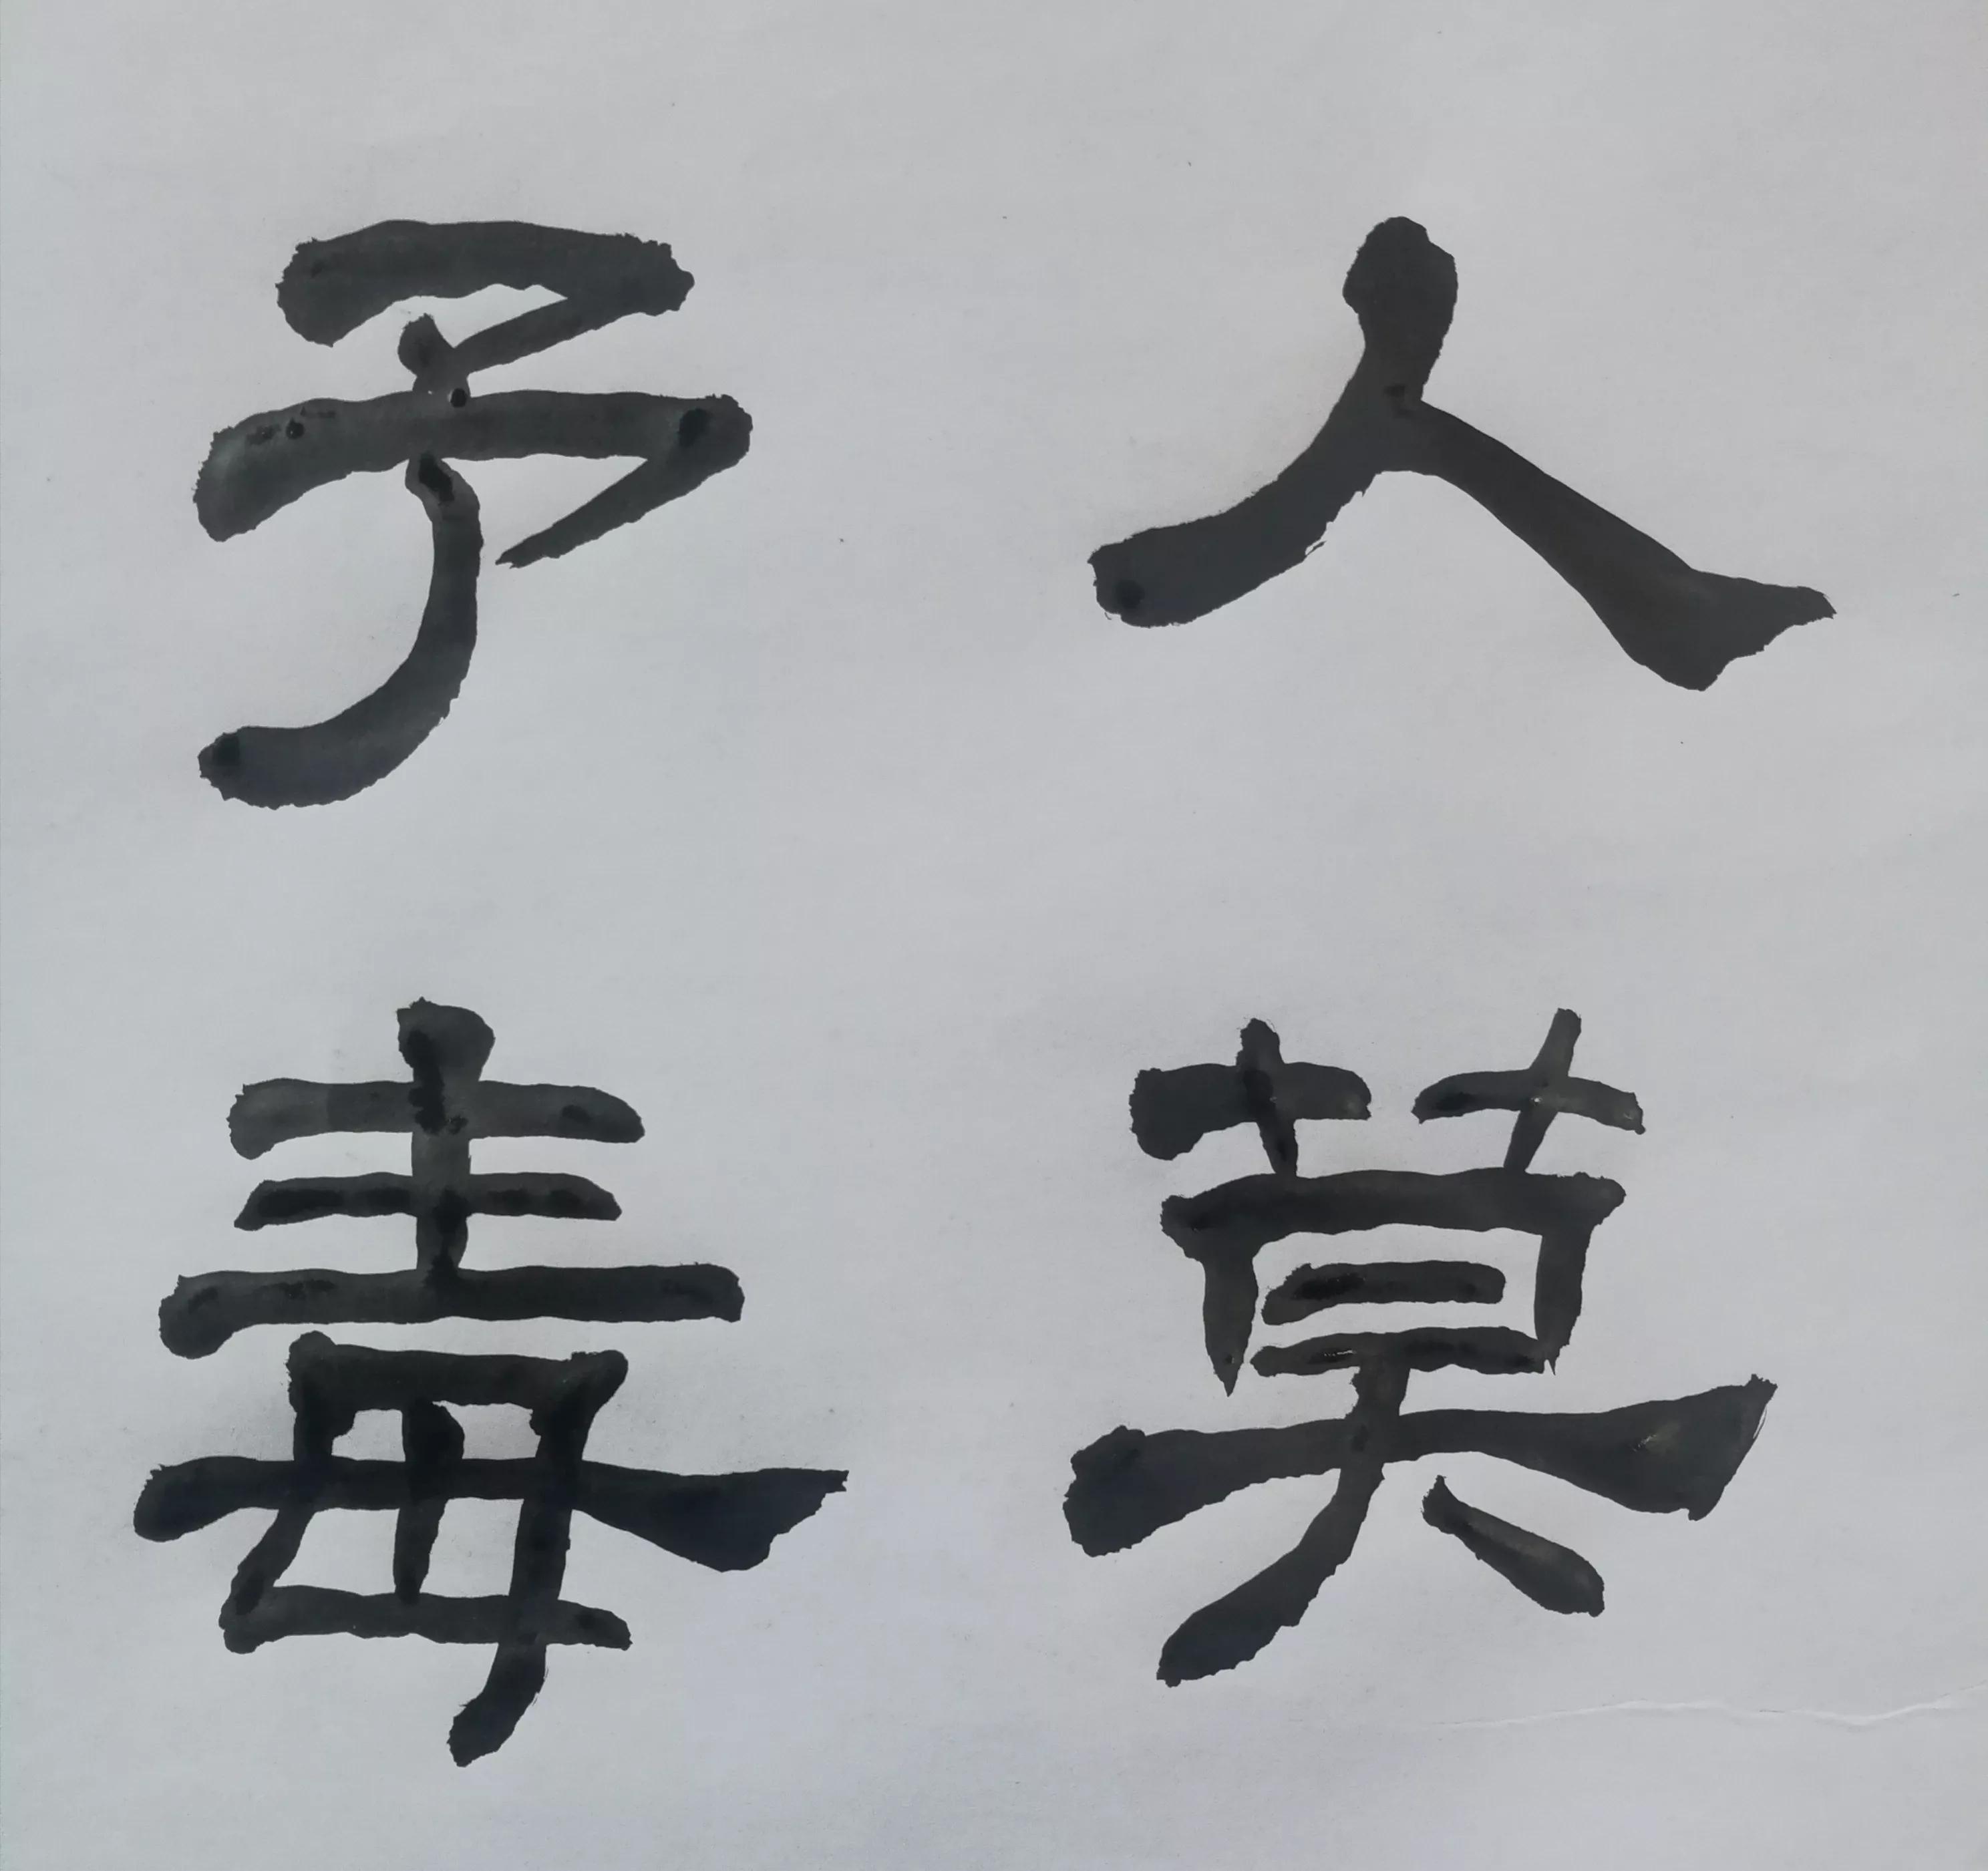 人莫
予毒